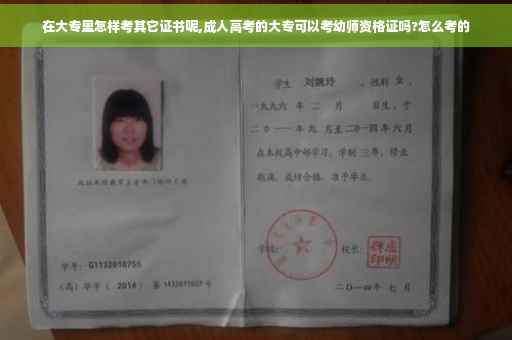 在大专里怎样考其它证书呢,成人高考的大专可以考幼师资格证吗?怎么考的
学生 刘婉玲 ,性别 女 ,
一九九六 年 二 月 日生,于
二〇一一年 九 月至二〇一四年 六 月
在本校高中部学习,学制 三年,修业
期满,成绩合格,准予毕业。
学号: G1132010755
(高)毕字( 2014 )第 1432011027 号
学校:
校长:
二〇一四年 七 月